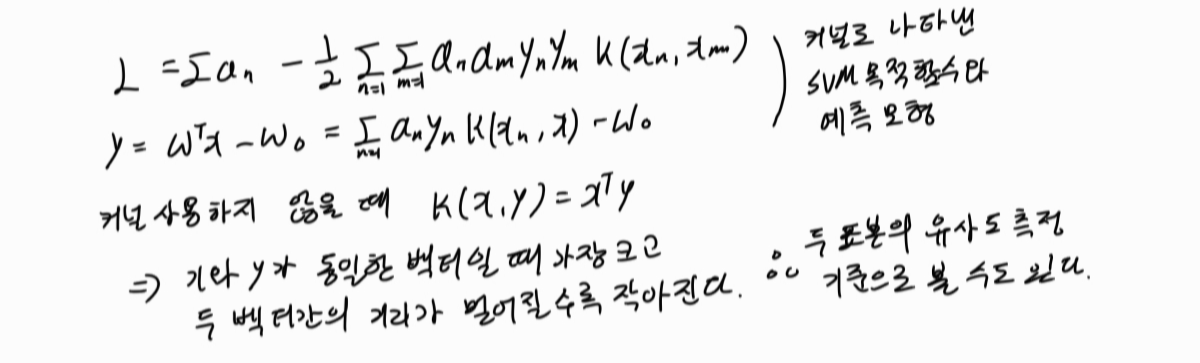 L = Σaₙ - 1/2 Σₙ₌₁ Σₘ₌₁ aₙaₘyₙyₘ k(xₙ, xₘ)
y = wᵀx - w₀ = Σₙ₌₁ aₙyₙk(xₙ, x) - w₀
커널로 나타낸
SVM 목적함수와
예측 모형
커널 사용하지 않을 때 k(x, y) = xᵀy
⇒ x와 y가 동일한 벡터일 때 가장 크고
두 벡터간의 거리가 멀어질수록 작아진다.
∴ 두 표본의 유사도 측정
기준으로 볼 수도 있다.